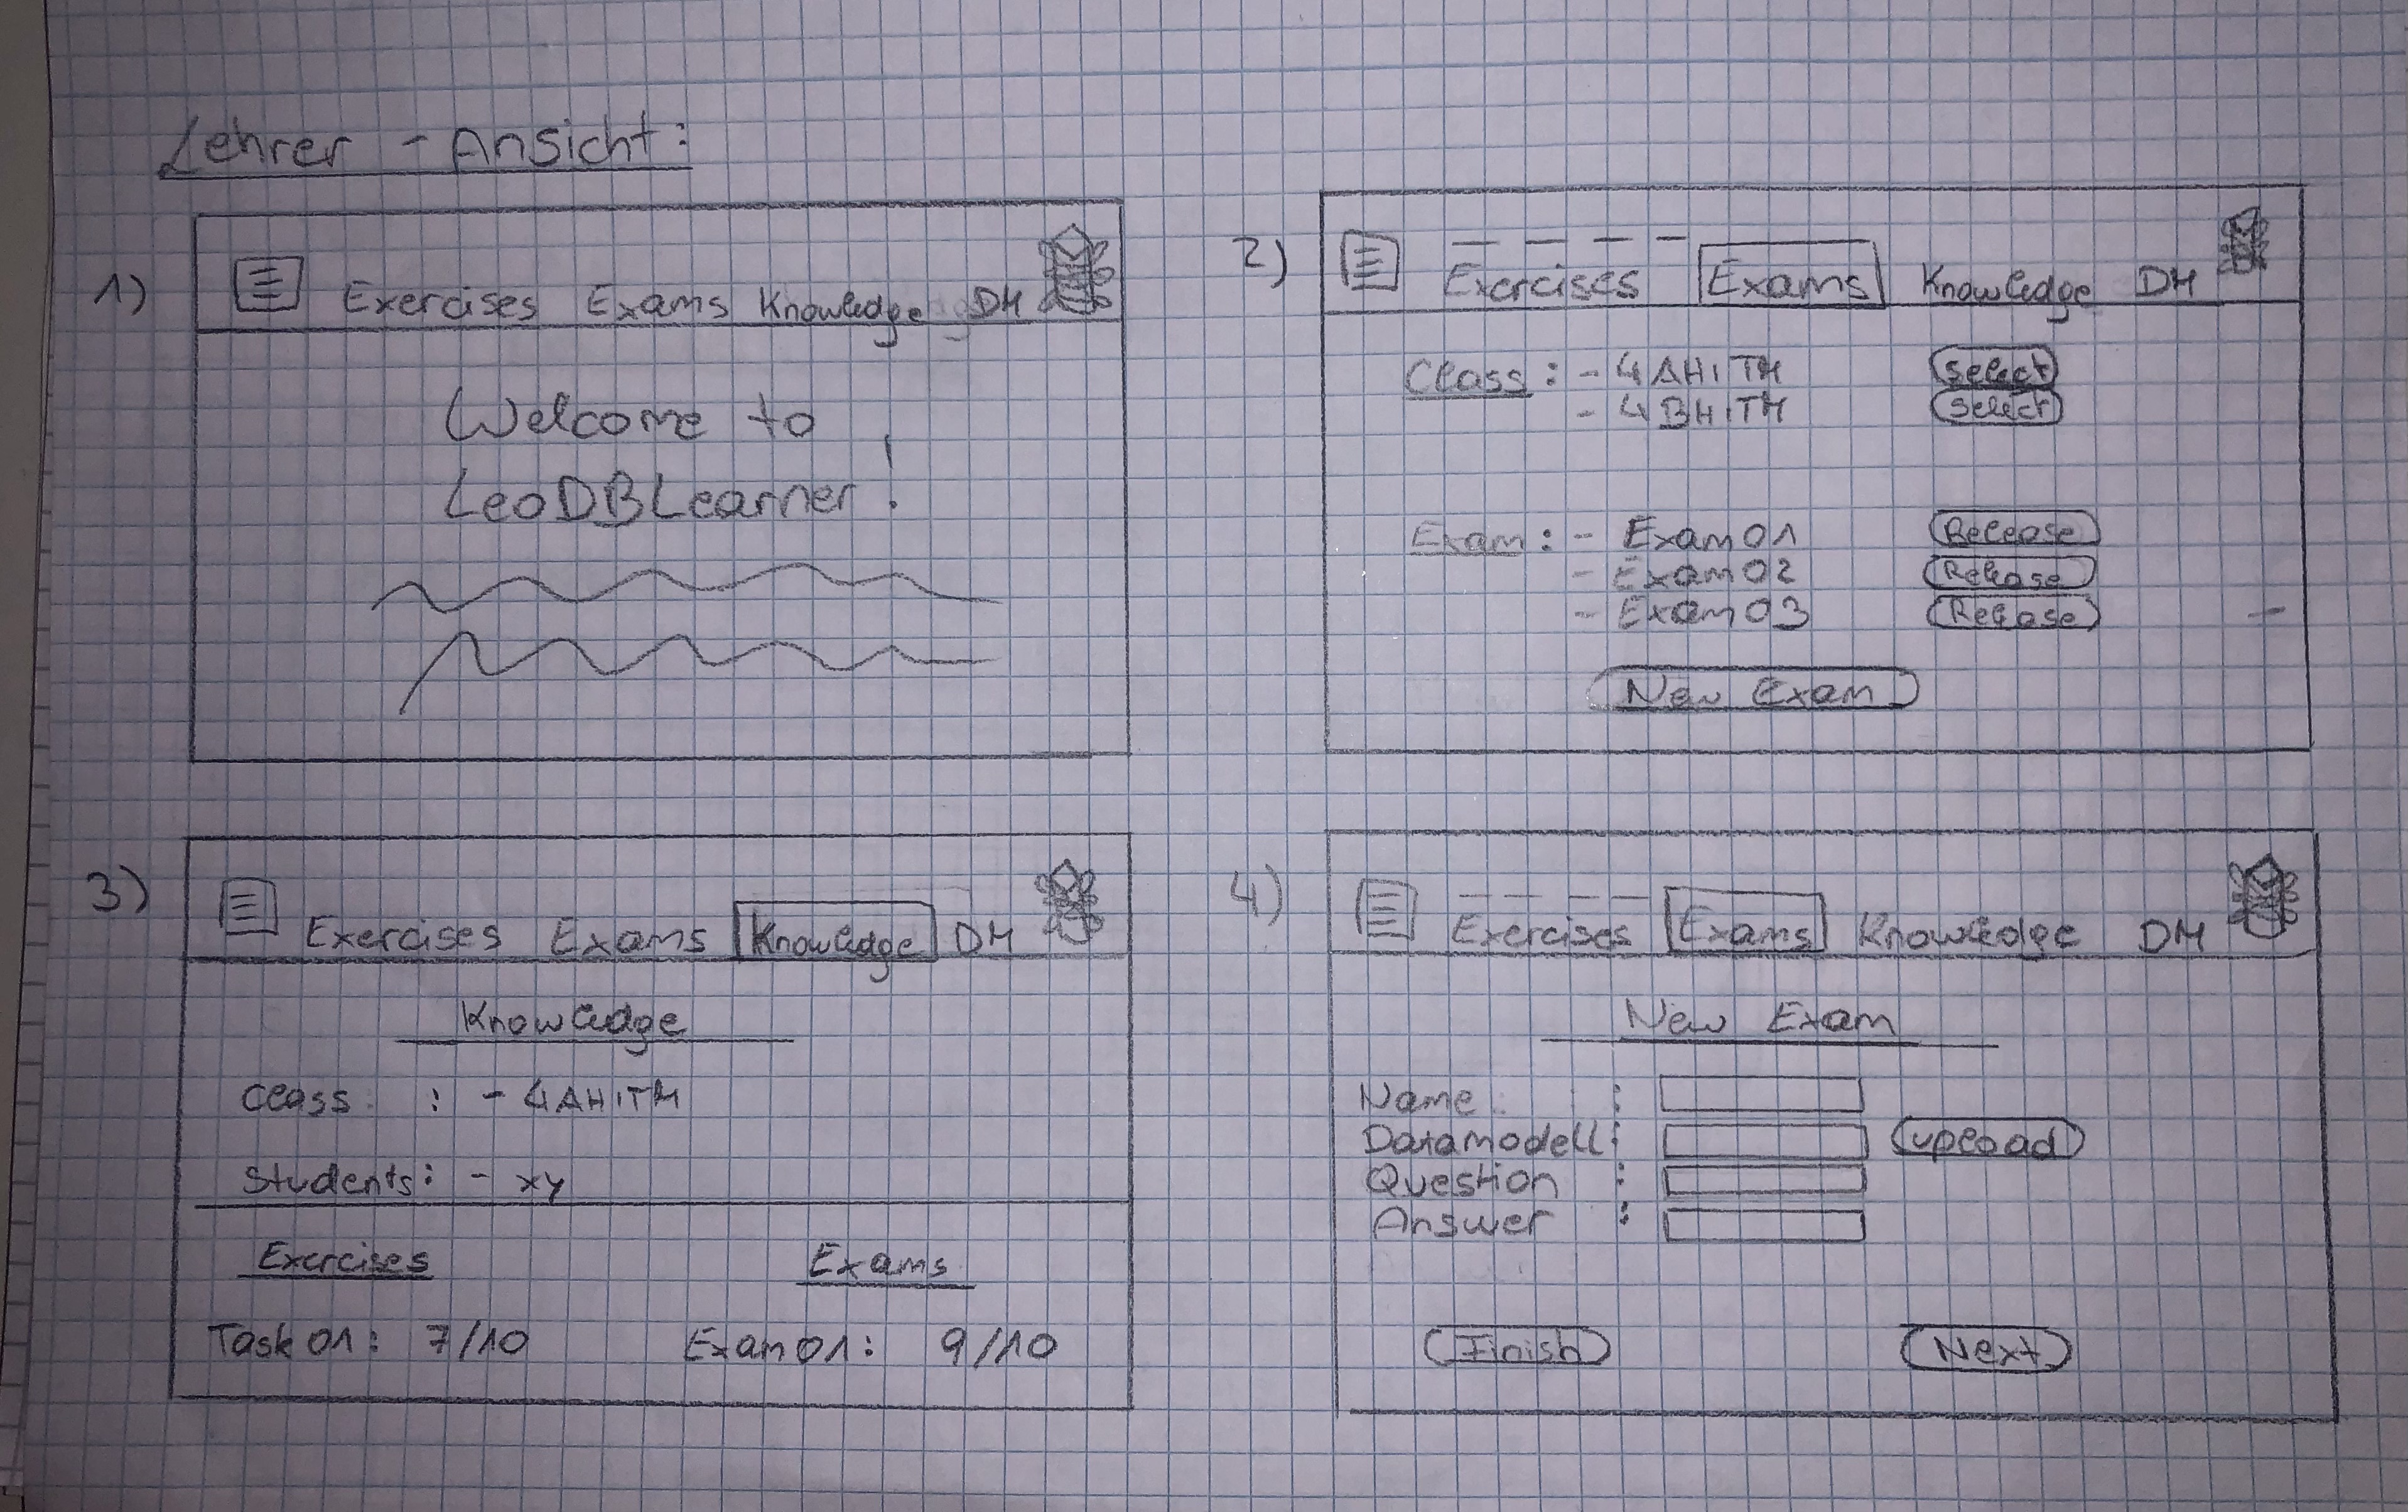 Lehrer - Ansicht:
1)
Exercises Exams Knowledge DM
Welcome to
LeoDBLearner!
2)
Exercises Exams Knowledge DM
Class: - 4AHITM Select
- 4BHITM Select
Exam: - Exam01 Release
- Exam02 Release
- Exam03 Release
New Exam
3)
Exercises Exams Knowledge DM
Knowledge
Class : - 4AHITM
Students: - xy
Exercises Exams
Task01: 7/10 Exam01: 9/10
4)
Exercises Exams Knowledge DM
New Exam
Name :
Datamodell: upload
Question :
Answer :
Finish Next